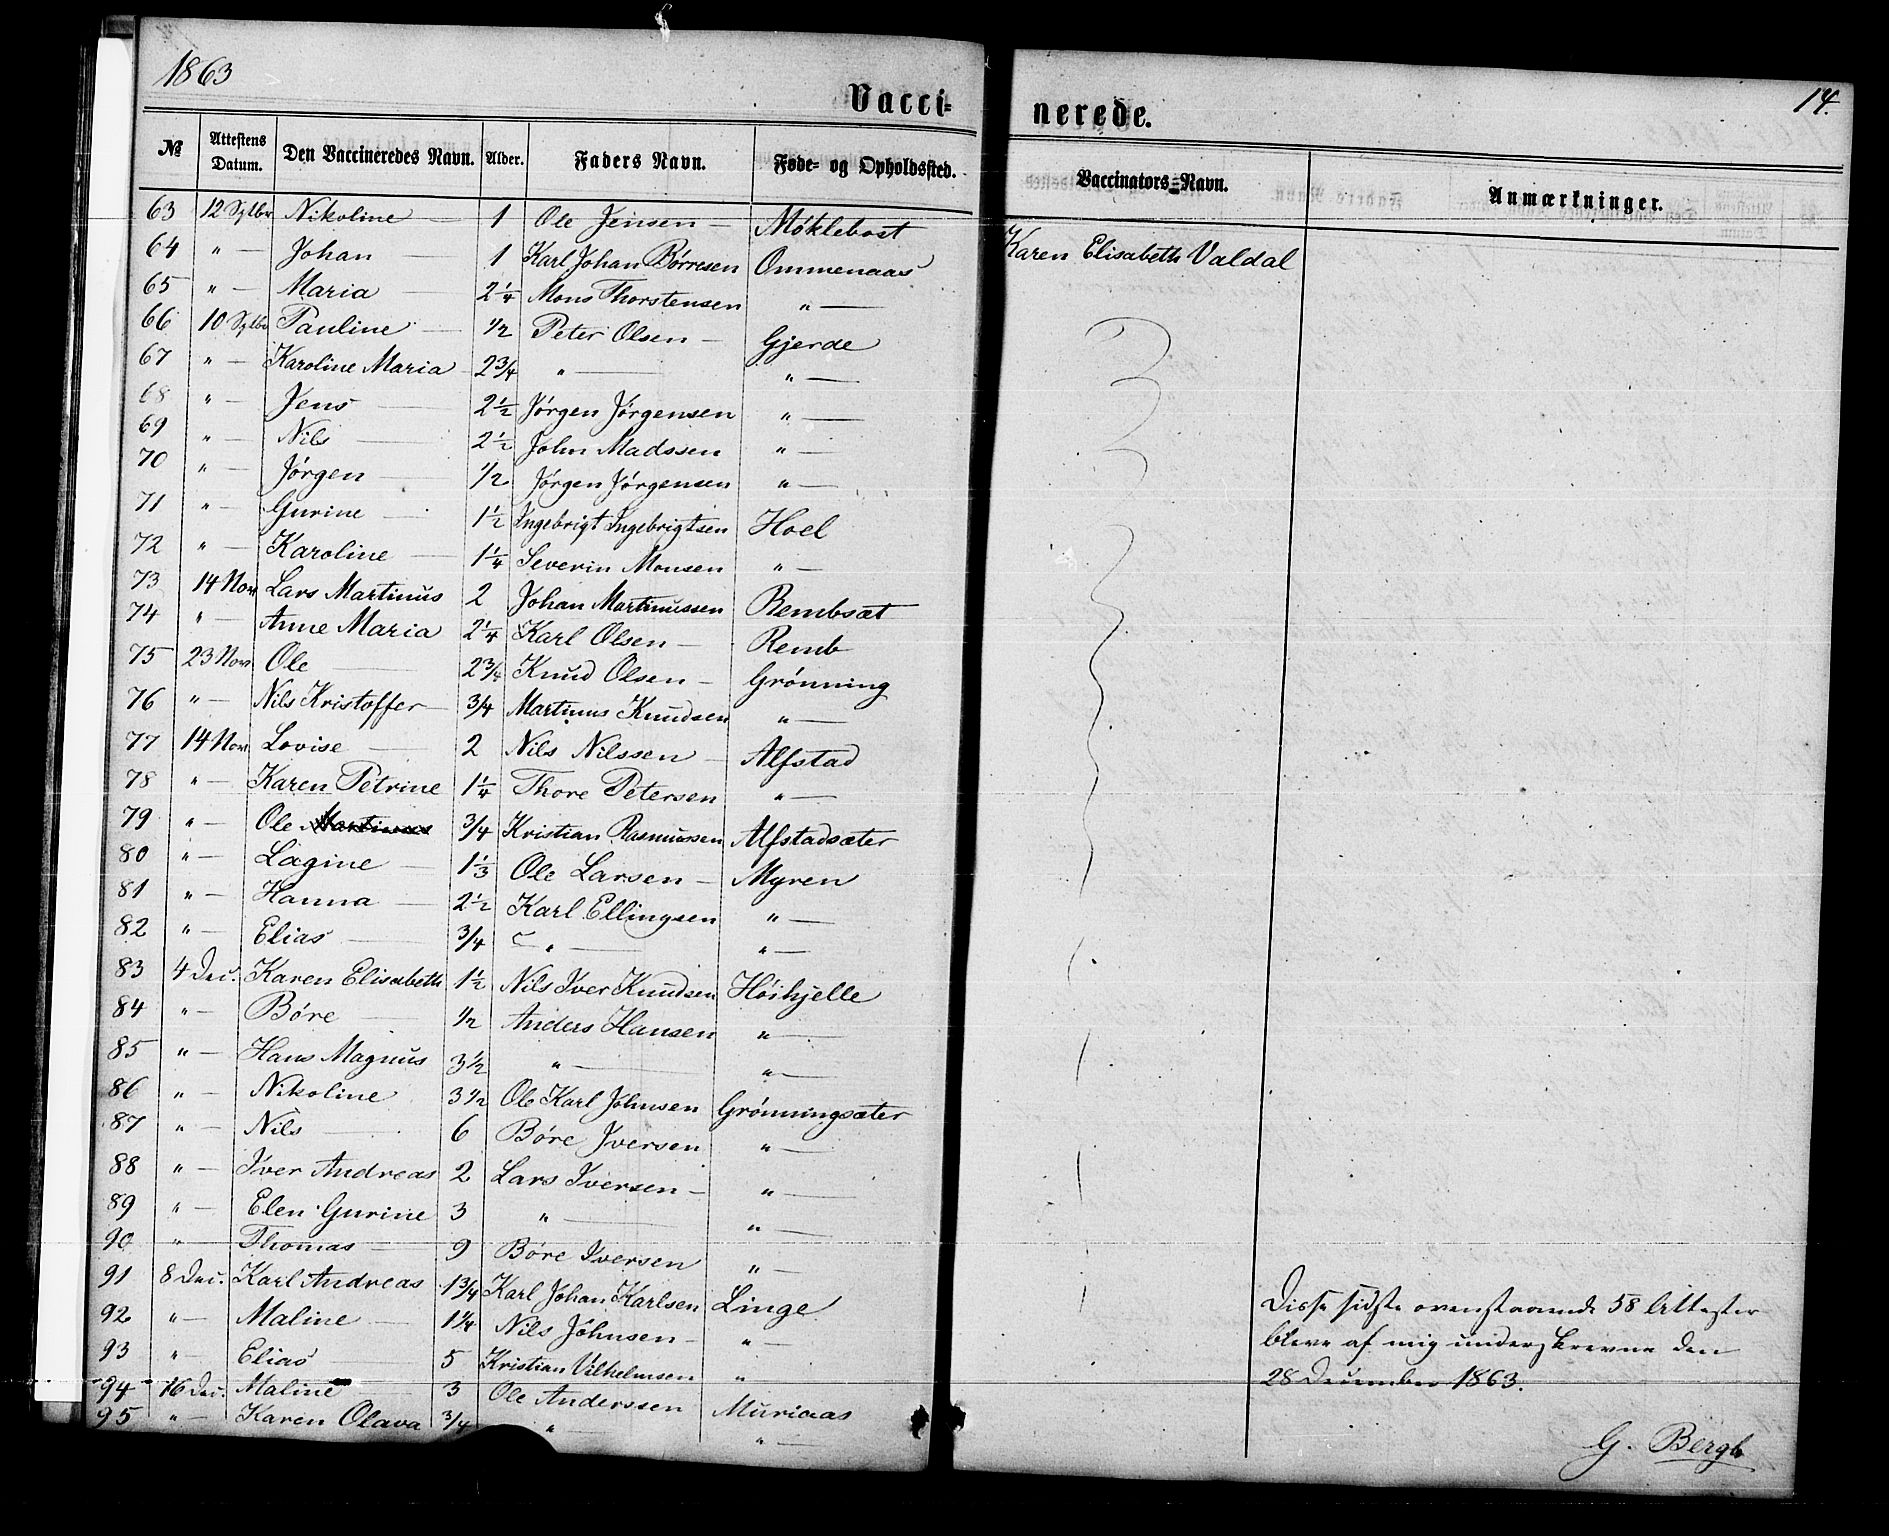 1863
14.
Vacci-
nerede.
№ Attestens Datum. Den Vaccineredes Navn. Alder. Faders Navn. Føde- og Opholdssted. Vaccinators-Navn. Anmærkninger.
63 12 Sptbr Nikoline — 1 Ole Jensen — Møklebost Karen Elisabeth Valdal
64 " — Johan — 1 Karl Johan Børresen Ommenaas
65 " — Maria — 2 1/4 Mons Thorstensen " —
66 10 Sptbr Pauline — 1/2 Peter Olsen — Gjerde
67 " — Karoline Maria 2 3/4 " — " —
68 " — Jens — 2 1/2 Jørgen Jørgensen " —
69 " — Nils — 2 1/2 John Madssen " —
70 " — Jørgen — 1/2 Jørgen Jørgensen " —
71 " — Gurine — 1 1/2 Ingebrigt Ingebrigtsen Hoel
72 " — Karoline — 1 1/4 Severin Monsen " —
73 14 Nov Lars Martinus 2 Johan Martinussen Rembsæt
74 " — Anne Maria 2 1/4 Karl Olsen — Remb
75 23 Nov Ole — 2 3/4 Knud Olsen — Grønning
76 " — Nils Kristoffer — 3/4 Martinus Knudsen " —
77 14 Nov. Lovise — 2 Nils Nilssen — Alfstad
78 " — Karen Petrine 1 1/4 Thore Petersen " —
79 " — Ole Martinus 3/4 Kristian Rasmussen Alfstadsæter
80 " — Lagine — 1 1/3 Ole Larsen — Myren
81 " — Hanna — 2 1/2 Karl Ellingsen " —
82 " — Elias — 3/4 " — " —
83 4 Dec. Karen Elisabeth 1 1/2 Nils Iver Knudsen Høihjelle
84 " — Børe — 1/2 Anders Hansen " —
85 " — Hans Magnus 3 1/2 " — " —
86 " — Nikoline 3 1/2 Ole Karl Johnsen Grønningsæter
87 " — Nils — 6 Børe Iversen " —
88 " — Iver Andreas 2 Lars Iversen — " —
89 " — Elen Gurine 3 " — " —
90 " — Thomas — 9 Børe Iversen " —
91 8 Dec. Karl Andreas 1 3/4 Karl Johan Karlsen Linge
92 " — Maline — 1 1/4 Nils Johnsen — " —
93 " — Elias — 5 Kristian Vilhelmsen "
94 16 Dec. Maline — 3 Ole Anderssen Muriaas
95 " — Karen Olava 3/4 " — " —
Disse sidste ovenstaaende 58 Attester
bleve af mig underskrevne den
28 December 1863.
G. Bergh